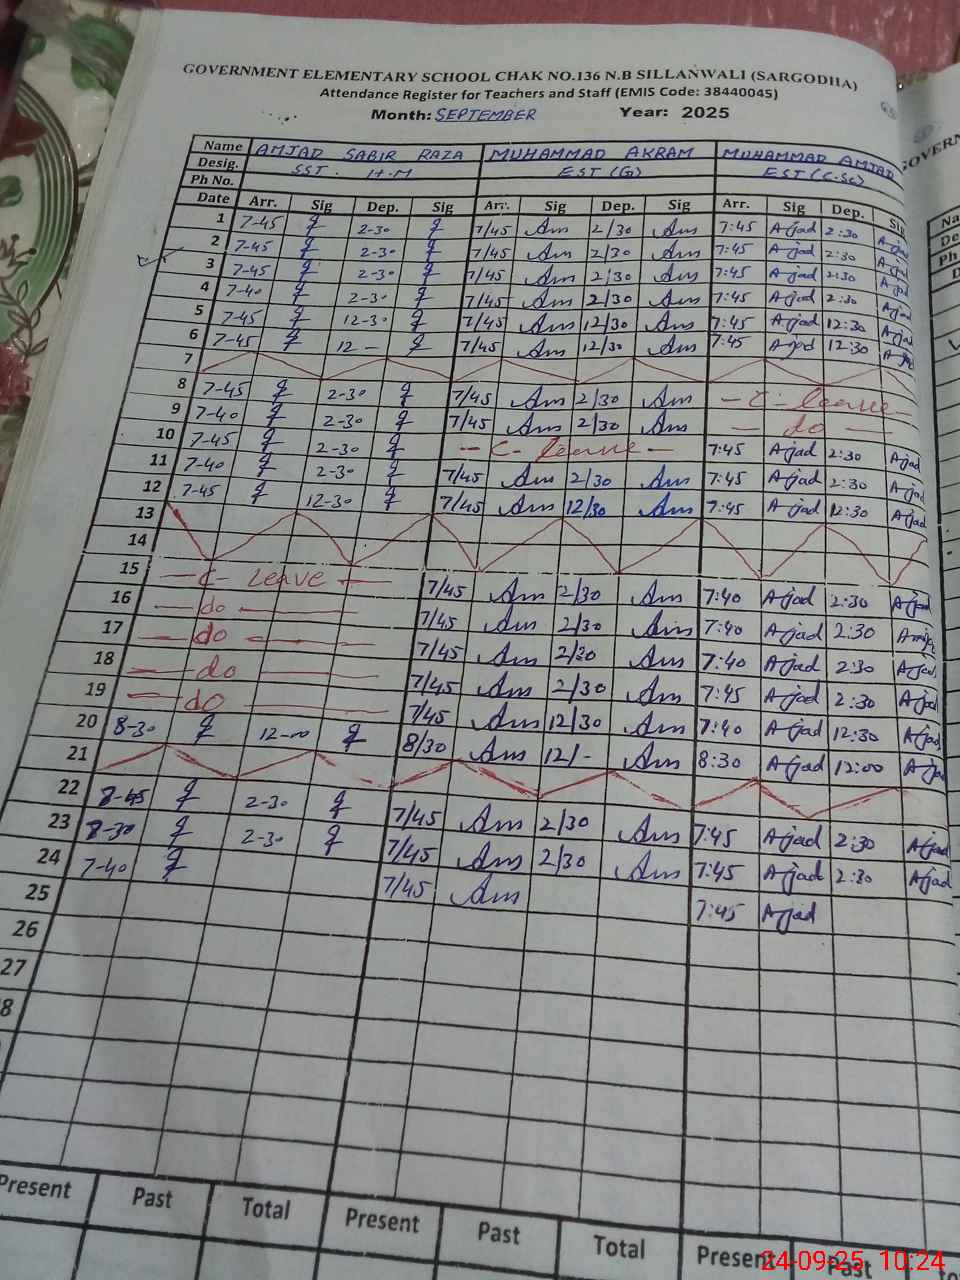 GOVERNMENT ELEMENTARY SCHOOL CHAK NO.136 N.B SILLANWALI (SARGODHA)
Attendance Register for Teachers and Staff (EMIS Code: 38440045)
Month: SEPTEMBER Year: 2025
Name AMJAD SABIR RAZA MUHAMMAD AKRAM MUHAMMAD AMJAD
Desig. SST. H.M EST (G) EST (C.Sc)
Ph No.
Date Arr. Sig Dep. Sig Arr. Sig Dep. Sig Arr. Sig Dep. Sig
1 7-45 2-30 7/45 Am 2/30 Am 7:45 Ajad 2:30 Ajad
2 7-45 2-30 7/45 Am 2/30 Am 7:45 Ajad 2:30 Ajad
3 7-45 2-30 7/45 Am 2/30 Am 7:45 Ajad 2:30 Ajad
4 7-40 2-30 7/45 Am 2/30 Am 7:45 Ajad 2:30 Ajad
5 7-45 12-30 7/45 Am 12/30 Am 7:45 Ajad 12:30 Ajad
6 7-45 12- 7/45 Am 12/30 Am 7:45 Ajad 12:30 Ajad
7
8 7-45 2-30 7/45 Am 2/30 Am - C- leave
9 7-40 2-30 7/45 Am 2/30 Am - do -
10 7-45 2-30 - C- leave - 7:45 Ajad 2:30 Ajad
11 7-40 2-30 7/45 Am 2/30 Am 7:45 Ajad 2:30 Ajad
12 7-45 12-30 7/45 Am 12/30 Am 7:45 Ajad 12:30 Ajad
13
14
15 - C- leave - 7/45 Am 2/30 Am 7:40 Ajad 2:30 Ajad
16 - do - 7/45 Am 2/30 Am 7:40 Ajad 2:30
17 - do - 7/45 Am 2/30 Am 7:40 Ajad 2:30 Ajad
18 - do - 7/45 Am 2/30 Am 7:45 Ajad 2:30 Ajad
19 - do - 7/45 Am 12/30 Am 7:40 Ajad 12:30 Ajad
20 8-30 12-00 8/30 Am 12/- Am 8:30 Ajad 12:00 Ajad
21
22 8-45 2-30 7/45 Am 2/30 Am 7:45 Ajad 2:30 Ajad
23 8-30 2-30 7/45 Am 2/30 Am 7:45 Ajad 2:30 Ajad
24 7-40 7/45 Am 7:45 Ajad
25
26
27
8
Present Past Total Present Past Total Present Past
24-09-25 10:24